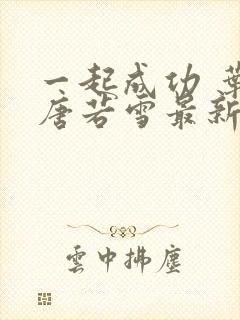 一起成功 葉
唐若雪最新
雲中拂塵